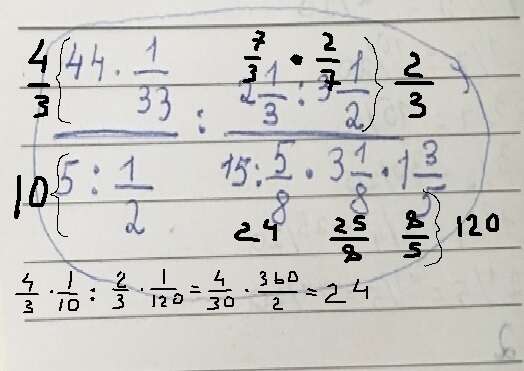 4/3 { 44 · 1/33 : 7/3 · 2/7 2 1/3 : 3 1/2 } 2/3
10 { 5 : 1/2 15 : 5/8 · 3 1/8 · 1 3/5
24 25/8 8/5 } 120
4/3 · 1/10 : 2/3 · 1/120 = 4/30 · 360/2 = 24